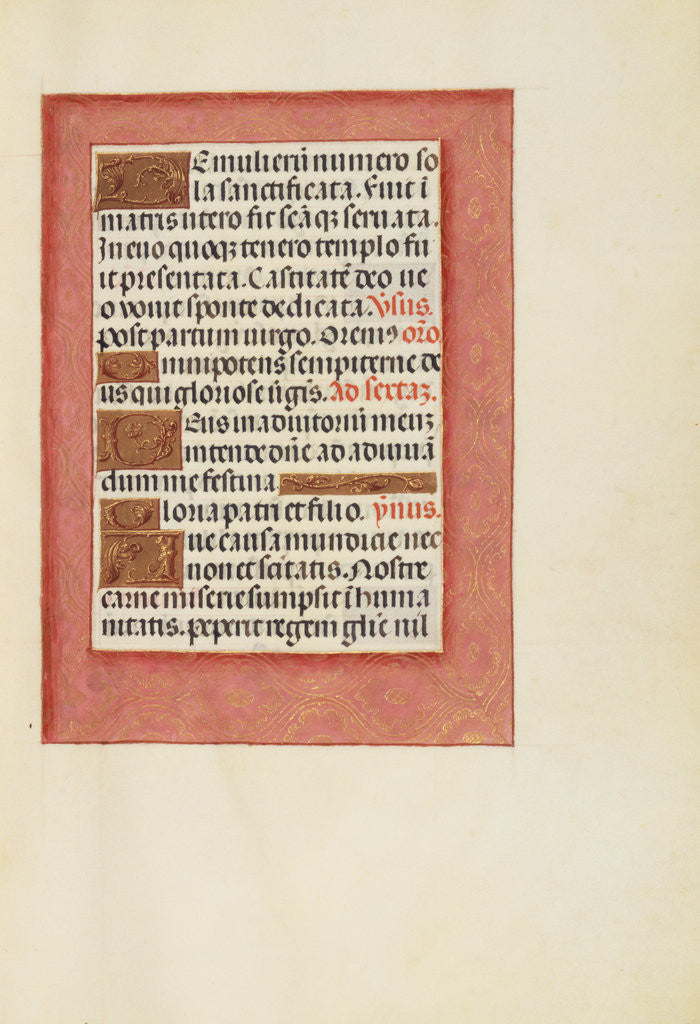 DE mulierū numero so
la sanctificata. Fuit ī
matris utero sit scāqꝫ seruata.
In euo quoqꝫ tenero templo fu
it presentata. Castitatē deo ue
o vouit sponte dedicata. v̄sus.
post partum uirgo. Oremꝰ orō
Omnipotens sempiterne de
us qui gloriose ūgīs. Ad sextaꝫ.
DEus in adiutoriū meuꝫ
intende dn̄e ad adiuuā
dum me festina.
Gloria patri et filio. ȳnus.
Aue causa mundicie nec
non et scītatis. Nostre
carne miserie sumpsit ī huma
nitatis. peperit regem glīe nil